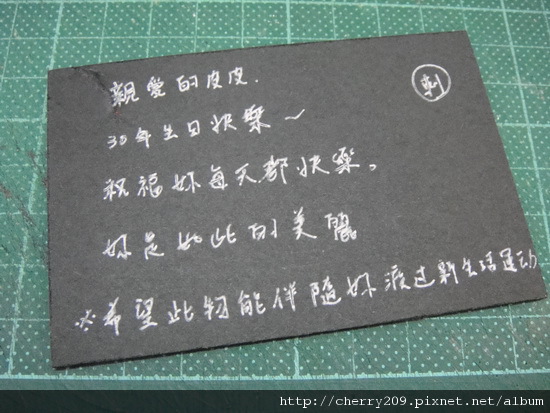 親愛的皮皮.
刺
30年生日快樂~
祝福妳每天都快樂。
妳是如此的美麗
※希望此物能伴隨妳渡过新生活运动
http://cherry209.pixnet.net/album